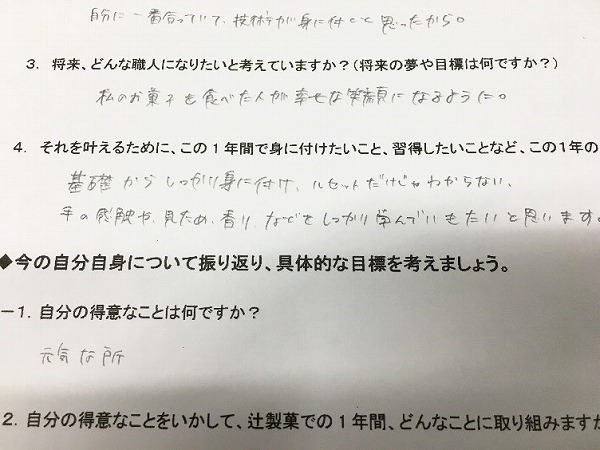 自分に一番合っていて、技術が身に付くと思ったから。
3. 将来、どんな職人になりたいと考えていますか?(将来の夢や目標は何ですか?)
私のお菓子を食べた人が幸せな笑顔になるように。
4. それを叶えるために、この1年間で身に付けたいこと、習得したいことなど、この1年の
基礎からしっかり身に付け、ルセットだけじゃわからない、
手の感触や、見ため、香り、などをしっかり学んでいきたいと思います。
◆今の自分自身について振り返り、具体的な目標を考えましょう。
－1. 自分の得意なことは何ですか?
元気な所
2. 自分の得意なことをいかして、辻製菓での1年間、どんなことに取り組みますか